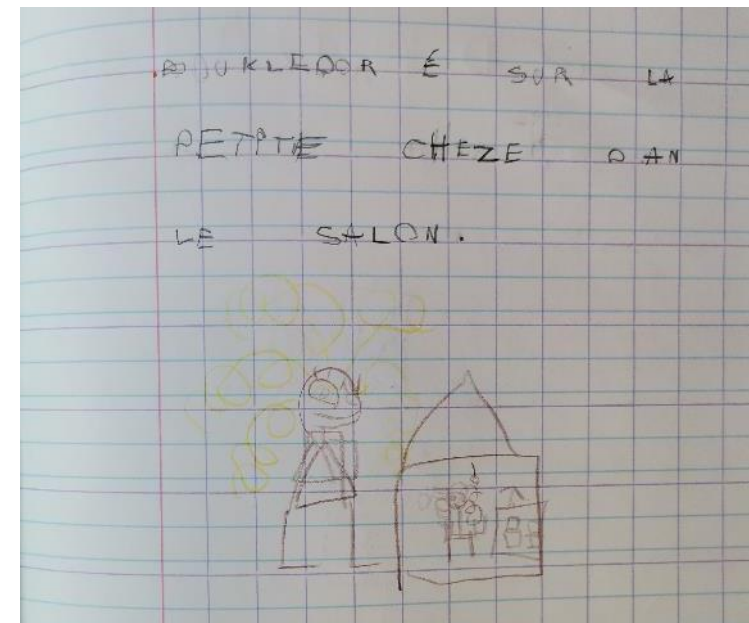 BOUKLEDOR É SUR LA
PETITE CHEZE DAN
LE SALON.